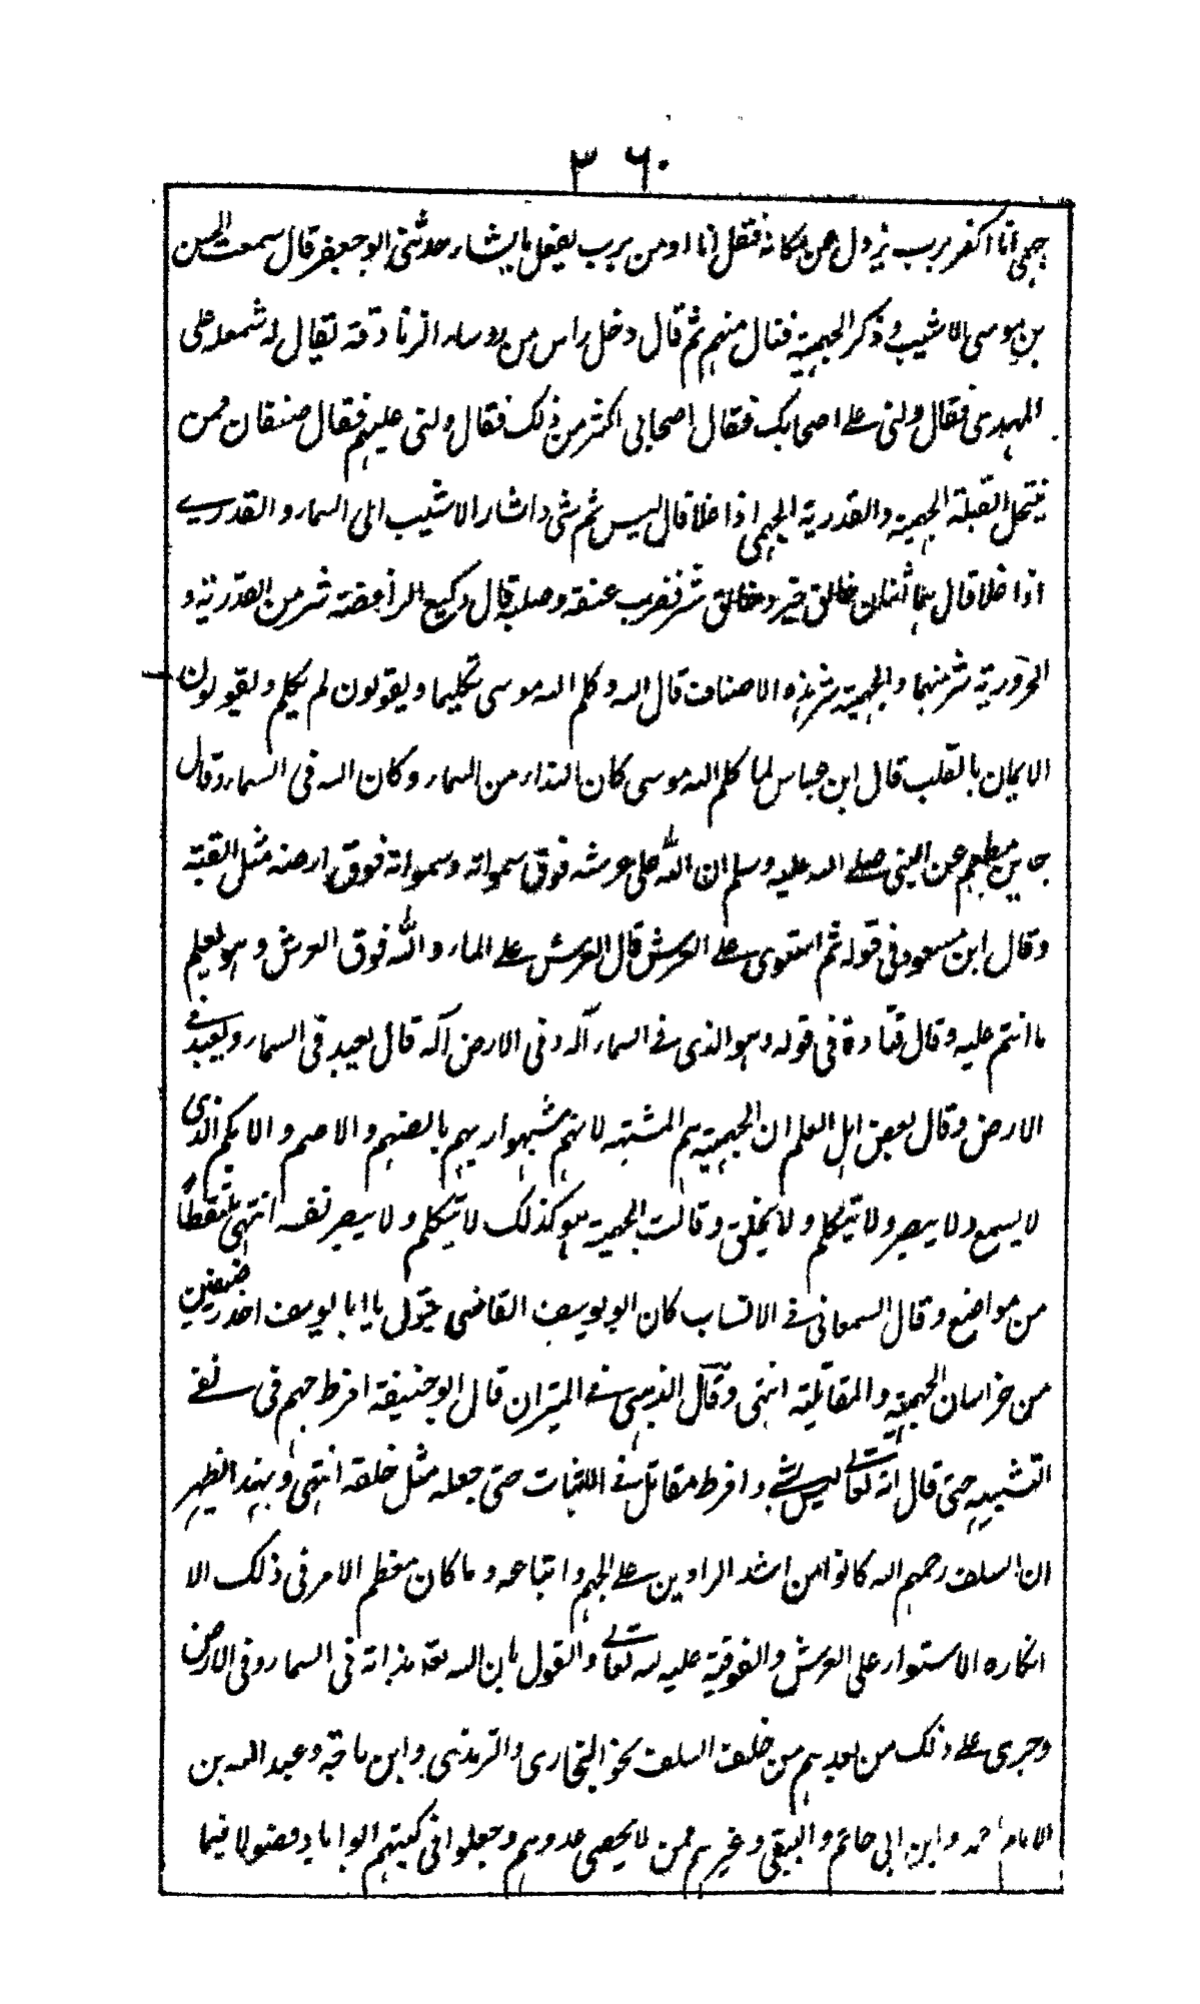 ٣٦٠
جهمي انا اكفر برب يزول عن مكانه فقل انا اومن برب يفعل ما يشاء حدثني ابو جعفر قال سمعت الحسن
بن موسى الاشيب وذكر الجهمية فنال منهم ثم قال دخل راس من روساء الزنادقة يقال له شمعلة على
المهدي فقال دلني على اصحابك فقال اصحابي اكثر من ذلك فقال دلني عليهم فقال صنفان ممن
ينتحل القبلة الجهمية والقدرية الجهمي اذا خلا قال ليس ثم شي واشار الاشيب الى السماء والقدري
اذا خلا قال هما اثنان خالق خير وخالق شر فضرب عنقه وصلبه قال وكيع الرافضة شر من القدرية و
الحرورية شر منهما والجهمية شر هذه الاصناف قال الله وكلم الله موسى تكليما ويقولون لم يكلم ويقولون
الايمان بالقلب قال ابن عباس لما كلم الله موسى كان النداء من السماء وكان الله في السماء وقال
جابر بن مطعم عن النبي صلى الله عليه وسلم ان الله على عرشه فوق سمواته وسمواته فوق ارضه مثل القبة
وقال ابن مسعود في قوله ثم استوى على العرش قال العرش على الماء والله فوق العرش وهو يعلم
ما انتم عليه وقال قتادة في قوله وهو الذي في السماء آله وفي الارض آله قال يعبد في السماء ويعبد في
الارض وقال بعض اهل العلم ان الجهمية هم المشبهه لانهم شبهوا ربهم بالصنم والاصم والابكم الذي
لا يسمع ولا يبصر ولا يتكلم ولا يخلق وقالت الجهمية هو كذلك لا يتكلم ولا يبصر نفسه انتهى ملتقطا
من مواضع وقال السمعاني في الانساب كان ابو يوسف القاضي يقول يا ابا يوسف احذر صنفين
من خراسان الجهمية والمقاتلية انتهى وقال الذهبي في الميزان قال ابو حنيفة افرط جهم في نفي
التشبيه حتى قال انه تعالى ليس بشي وافرط مقاتل في الاثبات حتى جعله مثل خلقه انتهى وبهذا ظهر
ان السلف رحمهم الله كانوا من اشد الرادين على الجهم واتباعه وما كان معظم الامر في ذلك الا
انكاره الاستواء على العرش والفوقية عليه لله تعالى والقول بان الله تعالى بذاته في السماء وفي الارض
وجرى على ذلك من بعدهم من خلف السلف نحو البخاري والترمذي وابن ماجة وعبد الله بن
الامام احمد وابن ابي حاتم والبيهقي وغيرهم ممن لا يحصى عددهم وجعلوا في كتبهم ابوابا وفصولا فيما